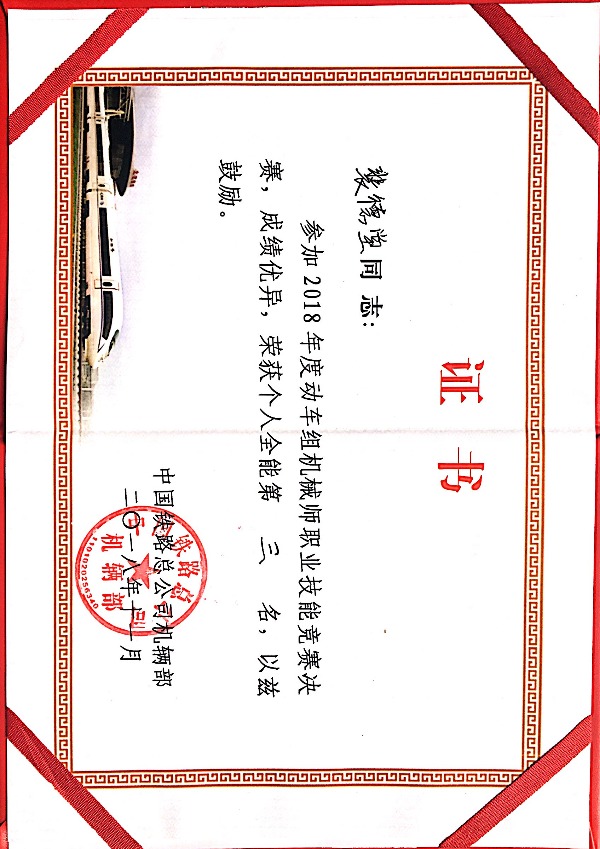 证书
同志:
参加2018年度动车组机械师职业技能竞赛决
赛,成绩优异,荣获个人全能第 三 名,以兹
鼓励。
中国铁路总公司机辆部
二〇一八年十一月
铁路总
机辆部